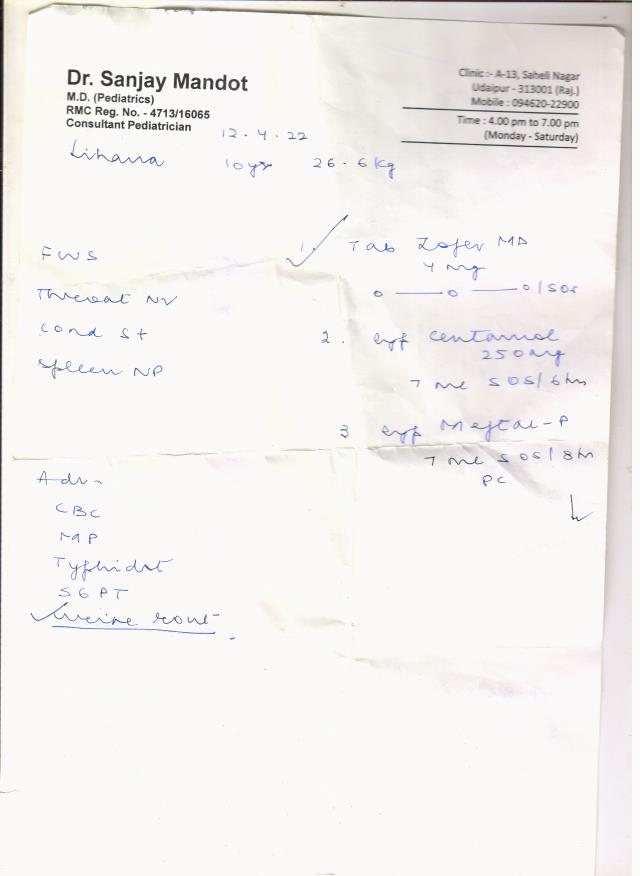 Dr. Sanjay Mandot
M.D. (Pediatrics)
RMC Reg. No. - 4713/16065
Consultant Pediatrician
Clinic :- A-13, Saheli Nagar
Udaipur - 313001 (Raj.)
Mobile : 094620-22900
Time : 4.00 pm to 7.00 pm
(Monday - Saturday)
12.4.22
10 yrs 26.6 kg
FWS
Throat NV
Cond S+
Spleen NP
1. Tab Zofer MD
4 mg
0 — 0 — 0 / SOS
2. Syp Centamol
250 mg
7 ml SOS / 6 hr
3 Syp Meftal-P
7 ml SOS / 8 hr
PC
Adv-
CBC
MP
Typhidot
SGPT
Urine rout